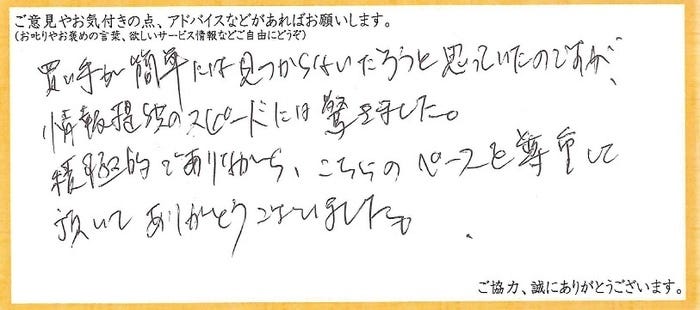 ご意見やお気付きの点、アドバイスなどがあればお願いします。
(お叱りやお褒めの言葉、欲しいサービス情報などご自由にどうぞ)
買い手が簡単には見つからないだろうと思っていたのですが、
情報提供のスピードには驚きました。
積極的でありながら、こちらのペースを尊重して
頂いてありがとうございました。
ご協力、誠にありがとうございます。